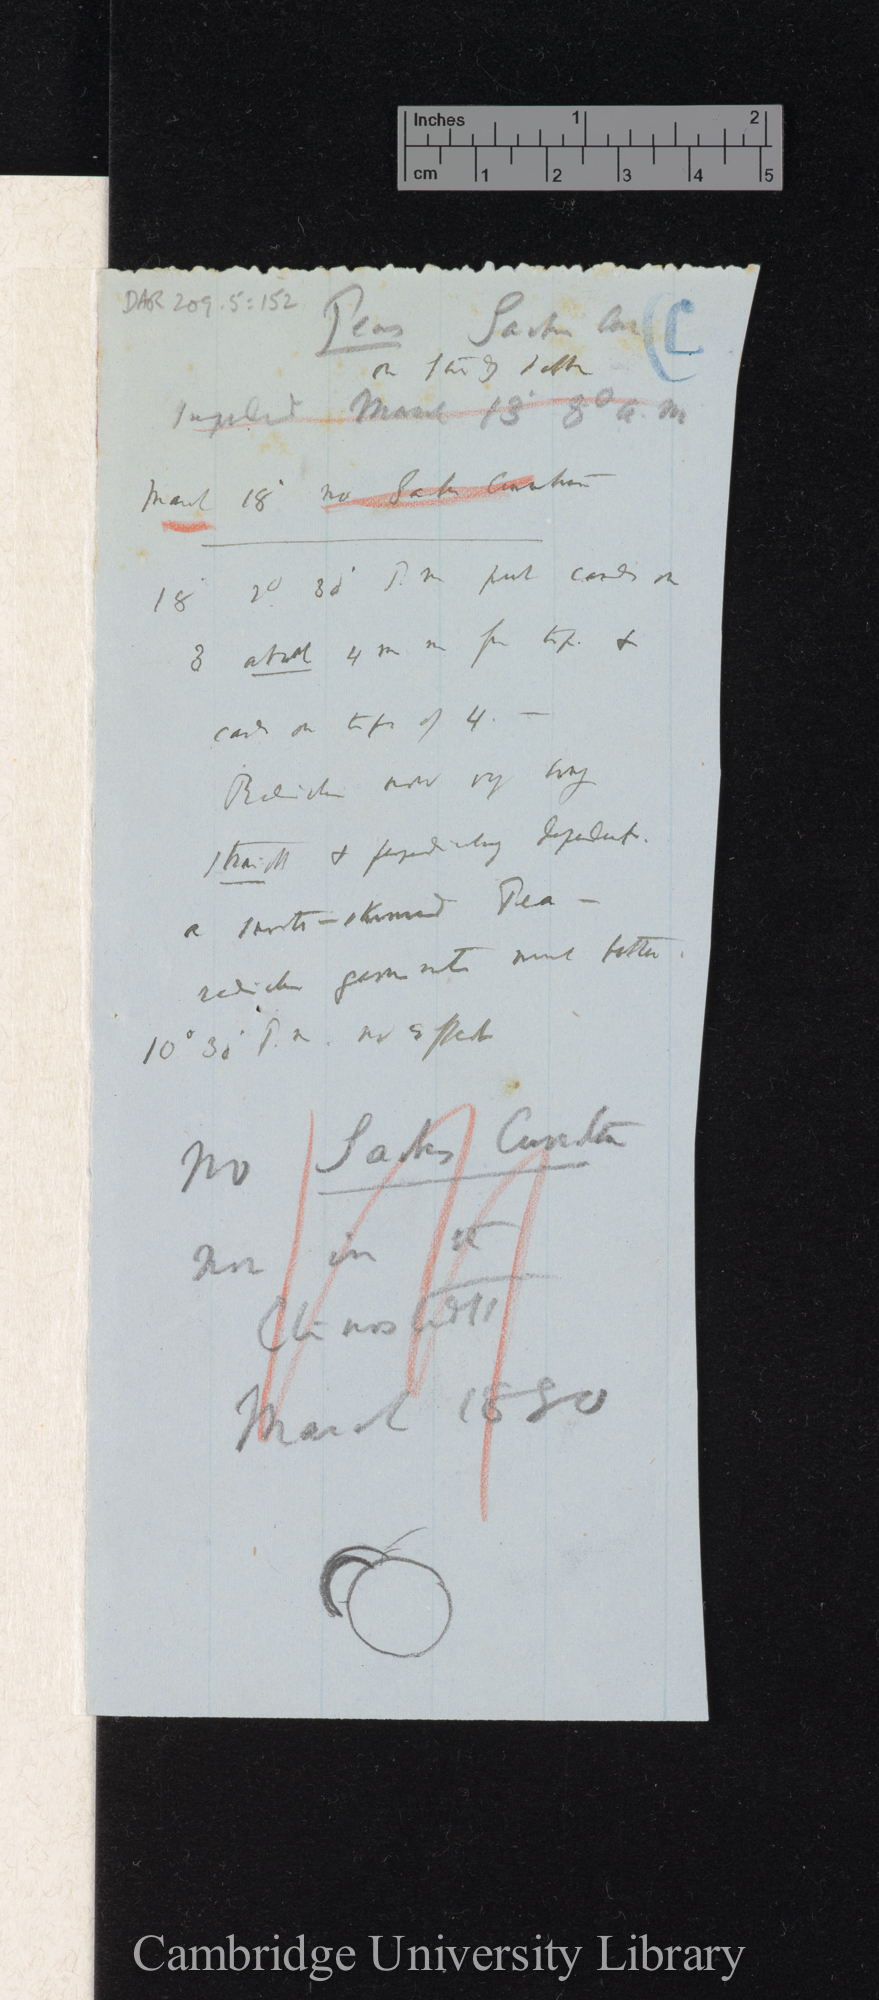 Inches 1 2
cm 1 2 3 4 5
DAR 209.5:152
Peas Sachs Cur
(C
on
March 18° 8° a.m
March 18° no Sachs Curvature
18° 2° 30' P.m put cards on
3 above 4 m m for tip. &
cards on tips of 4. —
Radicles now very long
straight & perpendicularly dependent.
a smooth-skinned Pea —
radicles germinate much better.
10° 30' P.m. no effect
No Sachs Curvature
nor in
Clinostat
March 1880
Cambridge University Library